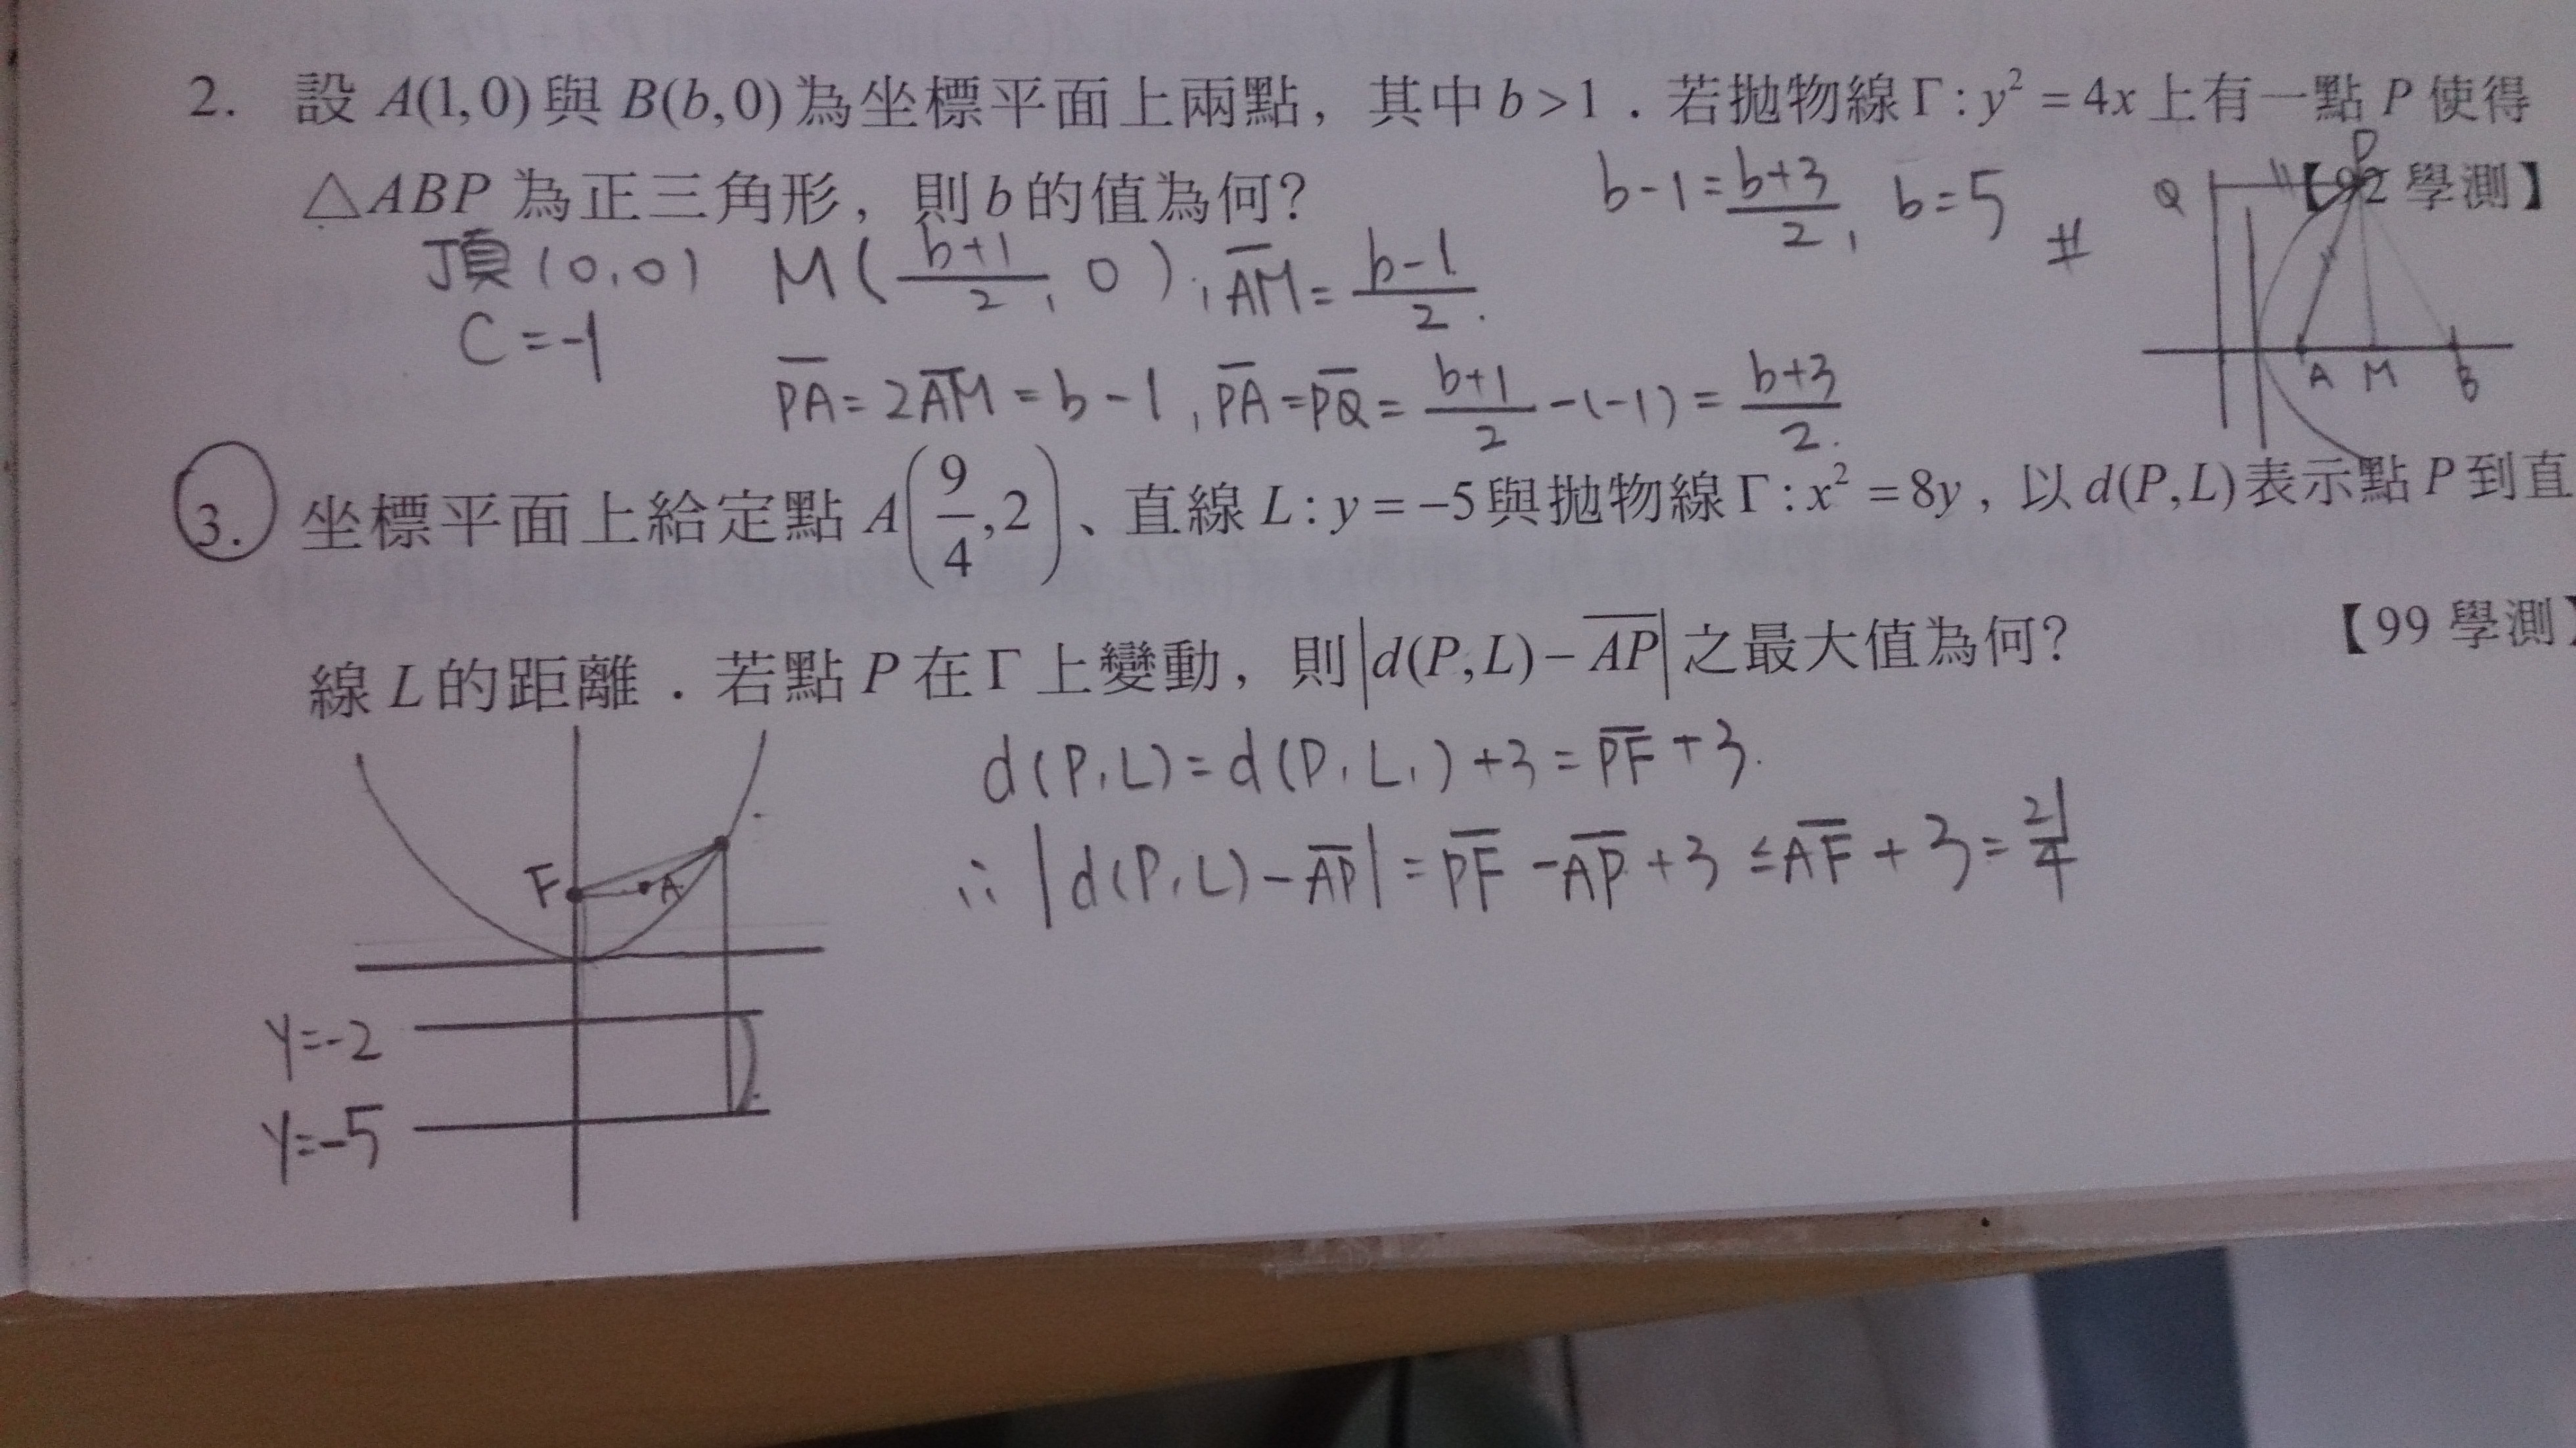 2. 設 A(1,0)與 B(b,0)為坐標平面上兩點，其中 b>1．若拋物線Γ:y²=4x上有一點 P 使得
△ABP 為正三角形，則b的值為何?
【92 學測】
b-1=b+3/2, b=5 #
頂(0,0) M(b+1/2, 0), A̅M̅=b-1/2.
C=-1
P̅A̅=2A̅M̅=b-1, P̅A̅=P̅Q̅=b+1/2-(-1)=b+3/2.
Q P
A M B
3. 坐標平面上給定點 A(9/4,2)、直線 L:y=-5與拋物線Γ:x²=8y，以d(P,L)表示點 P到直
線 L的距離．若點 P在Γ上變動，則|d(P,L)-A̅P̅|之最大值為何?
【99 學測】
d(P,L)=d(P,L₁)+3=P̅F̅+3.
∴|d(P,L)-A̅P̅|=P̅F̅-A̅P̅+3≤A̅F̅+3=21/4
F A
y=-2
y=-5